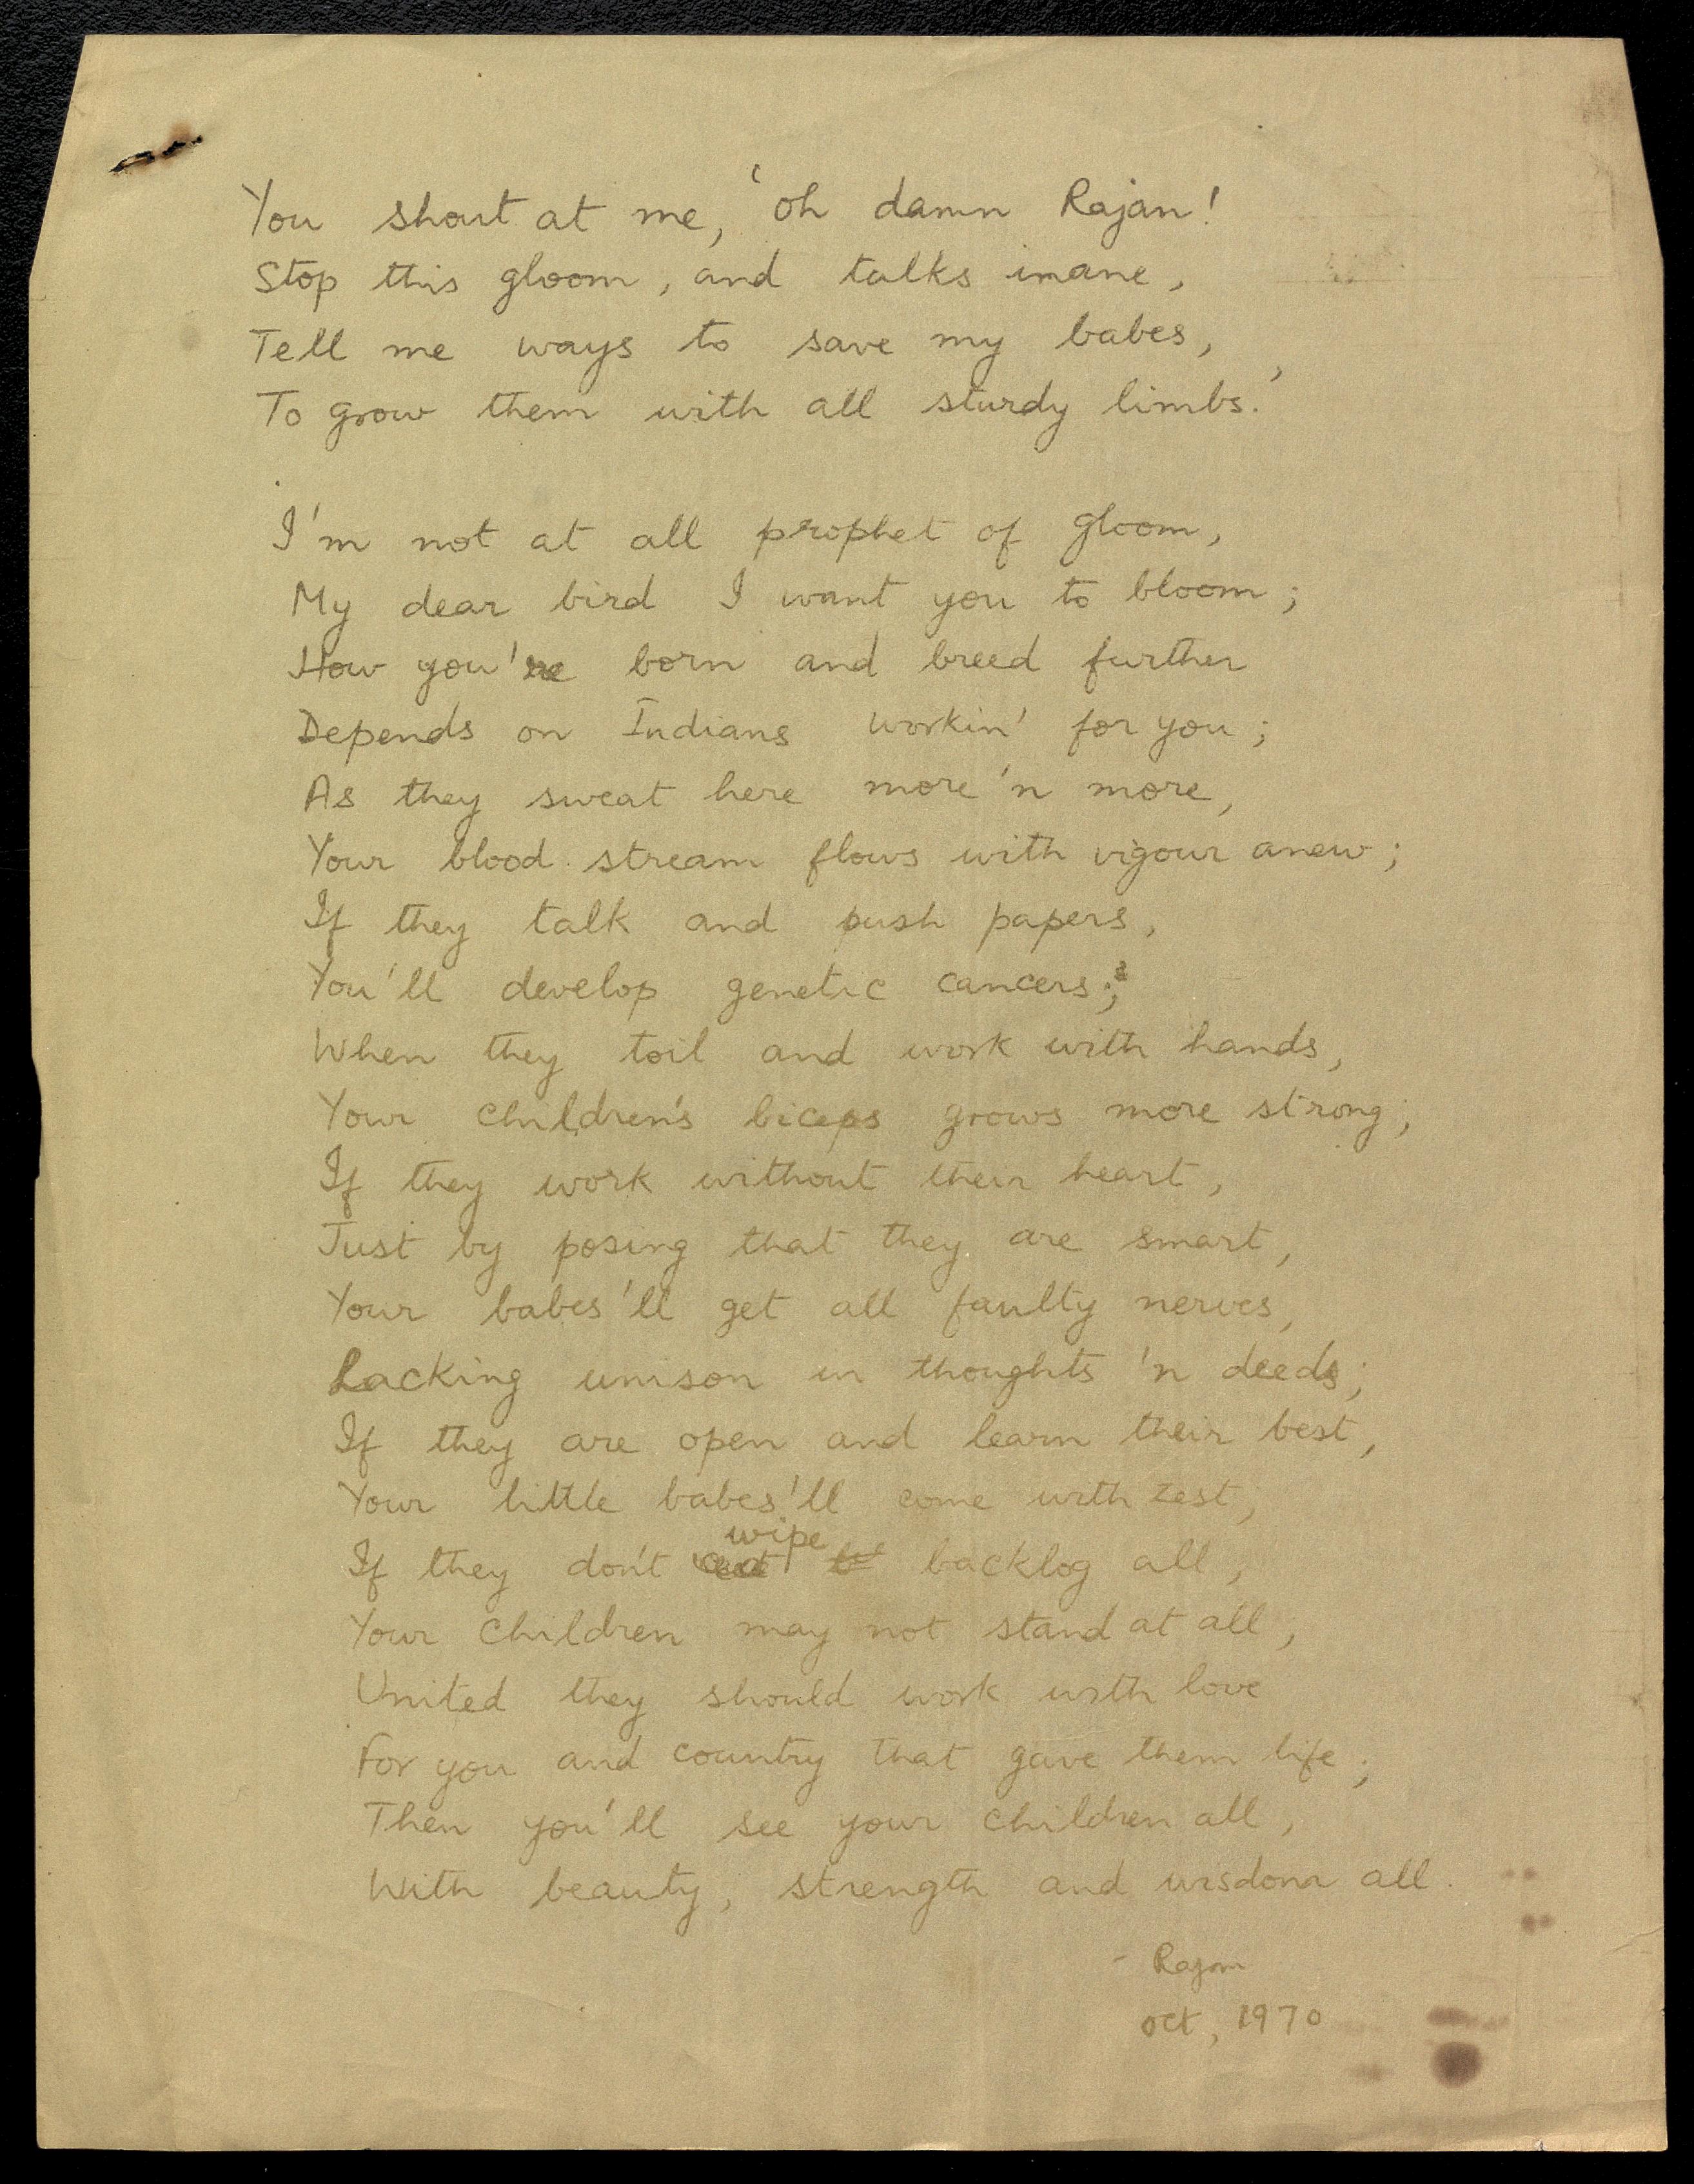 You shout at me, 'oh damn Rajan!
Stop this gloom, and talks inane,
Tell me ways to save my babes,
To grow them with all sturdy limbs.'
I'm not at all prophet of gloom,
My dear bird I want you to bloom;
How you're born and breed further
Depends on Indians workin' for you;
As they sweat here more 'n more,
Your blood stream flows with vigour anew;
If they talk and push papers,
You'll develop genetic cancers;
When they toil and work with hands,
Your children's biceps grows more strong;
If they work without their heart,
Just by posing that they are smart,
Your babes'll get all faulty nerves,
Lacking unison in thoughts 'n deeds;
If they are open and learn their best,
Your little babes'll come with zest;
If they don't wipe backlog all,
Your children may not stand at all;
United they should work with love
For you and country that gave them life;
Then you'll see your children all,
With beauty, strength and wisdom all.
- Rajan
Oct, 1970